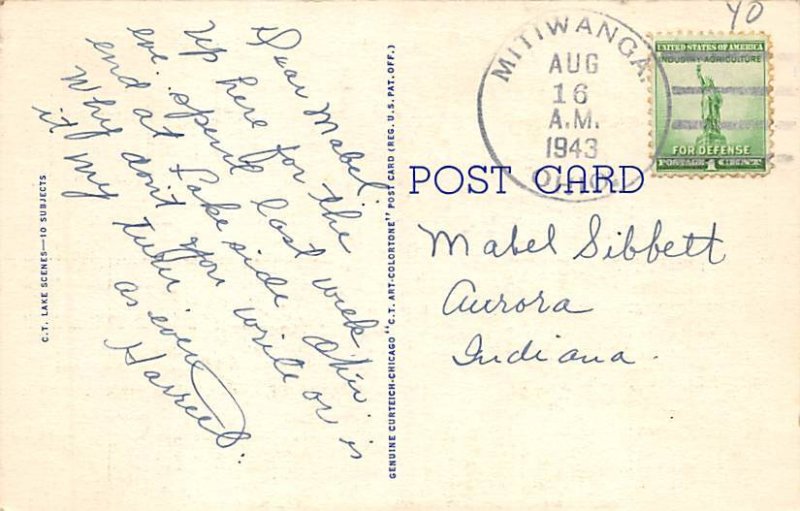 Dear Mabel:
Up here for the
eve. spent last week
end at Lake side Ohio.
Why don't you write or is
it my turn.
as ever
Harriet.
C.T. LAKE SCENES—10 SUBJECTS
GENUINE CURTEICH-CHICAGO "C.T. ART-COLORTONE" POST CARD (REG. U.S. PAT. OFF.)
YO
MITIWANGA,
AUG
16
A.M.
1943
OHIO
UNITED STATES OF AMERICA
INDUSTRY AGRICULTURE
FOR DEFENSE
POSTAGE 1 CENT
POST CARD
Mabel Sibbett
Aurora
Indiana.